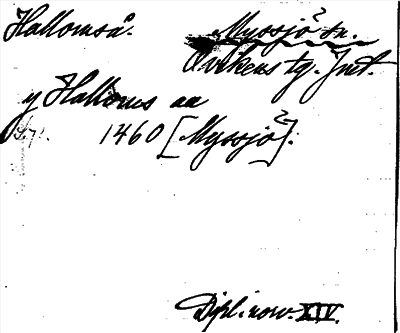 Hallomså. Myssjö sn.
Ovikens tg. Jmt.
y Halloms aa
1460 [Myssjö].
Dipl. norv. XIV.